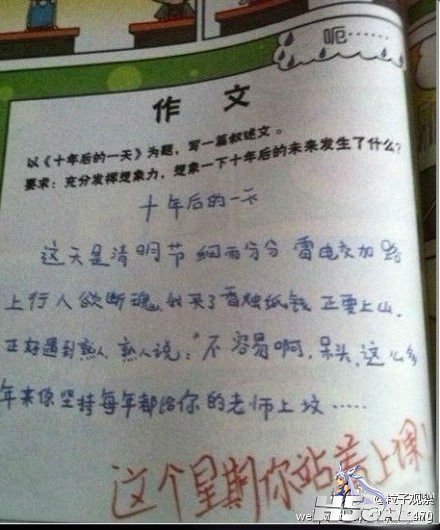 呃……
作 文
以《十年后的一天》为题，写一篇叙述文。
要求：充分发挥想象力，想象一下十年后的未来发生了什么？
十年后的一天
这天是清明节 细雨分分 雷电交加 路
上行人欲断魂，我买了香烛纸钱 正要上山。
正好遇到熟人 熟人说："不容易啊，呆头，这么多
年来你坚持每年都给你的老师上坟……
这个星期你站着上课！
@粒子观察